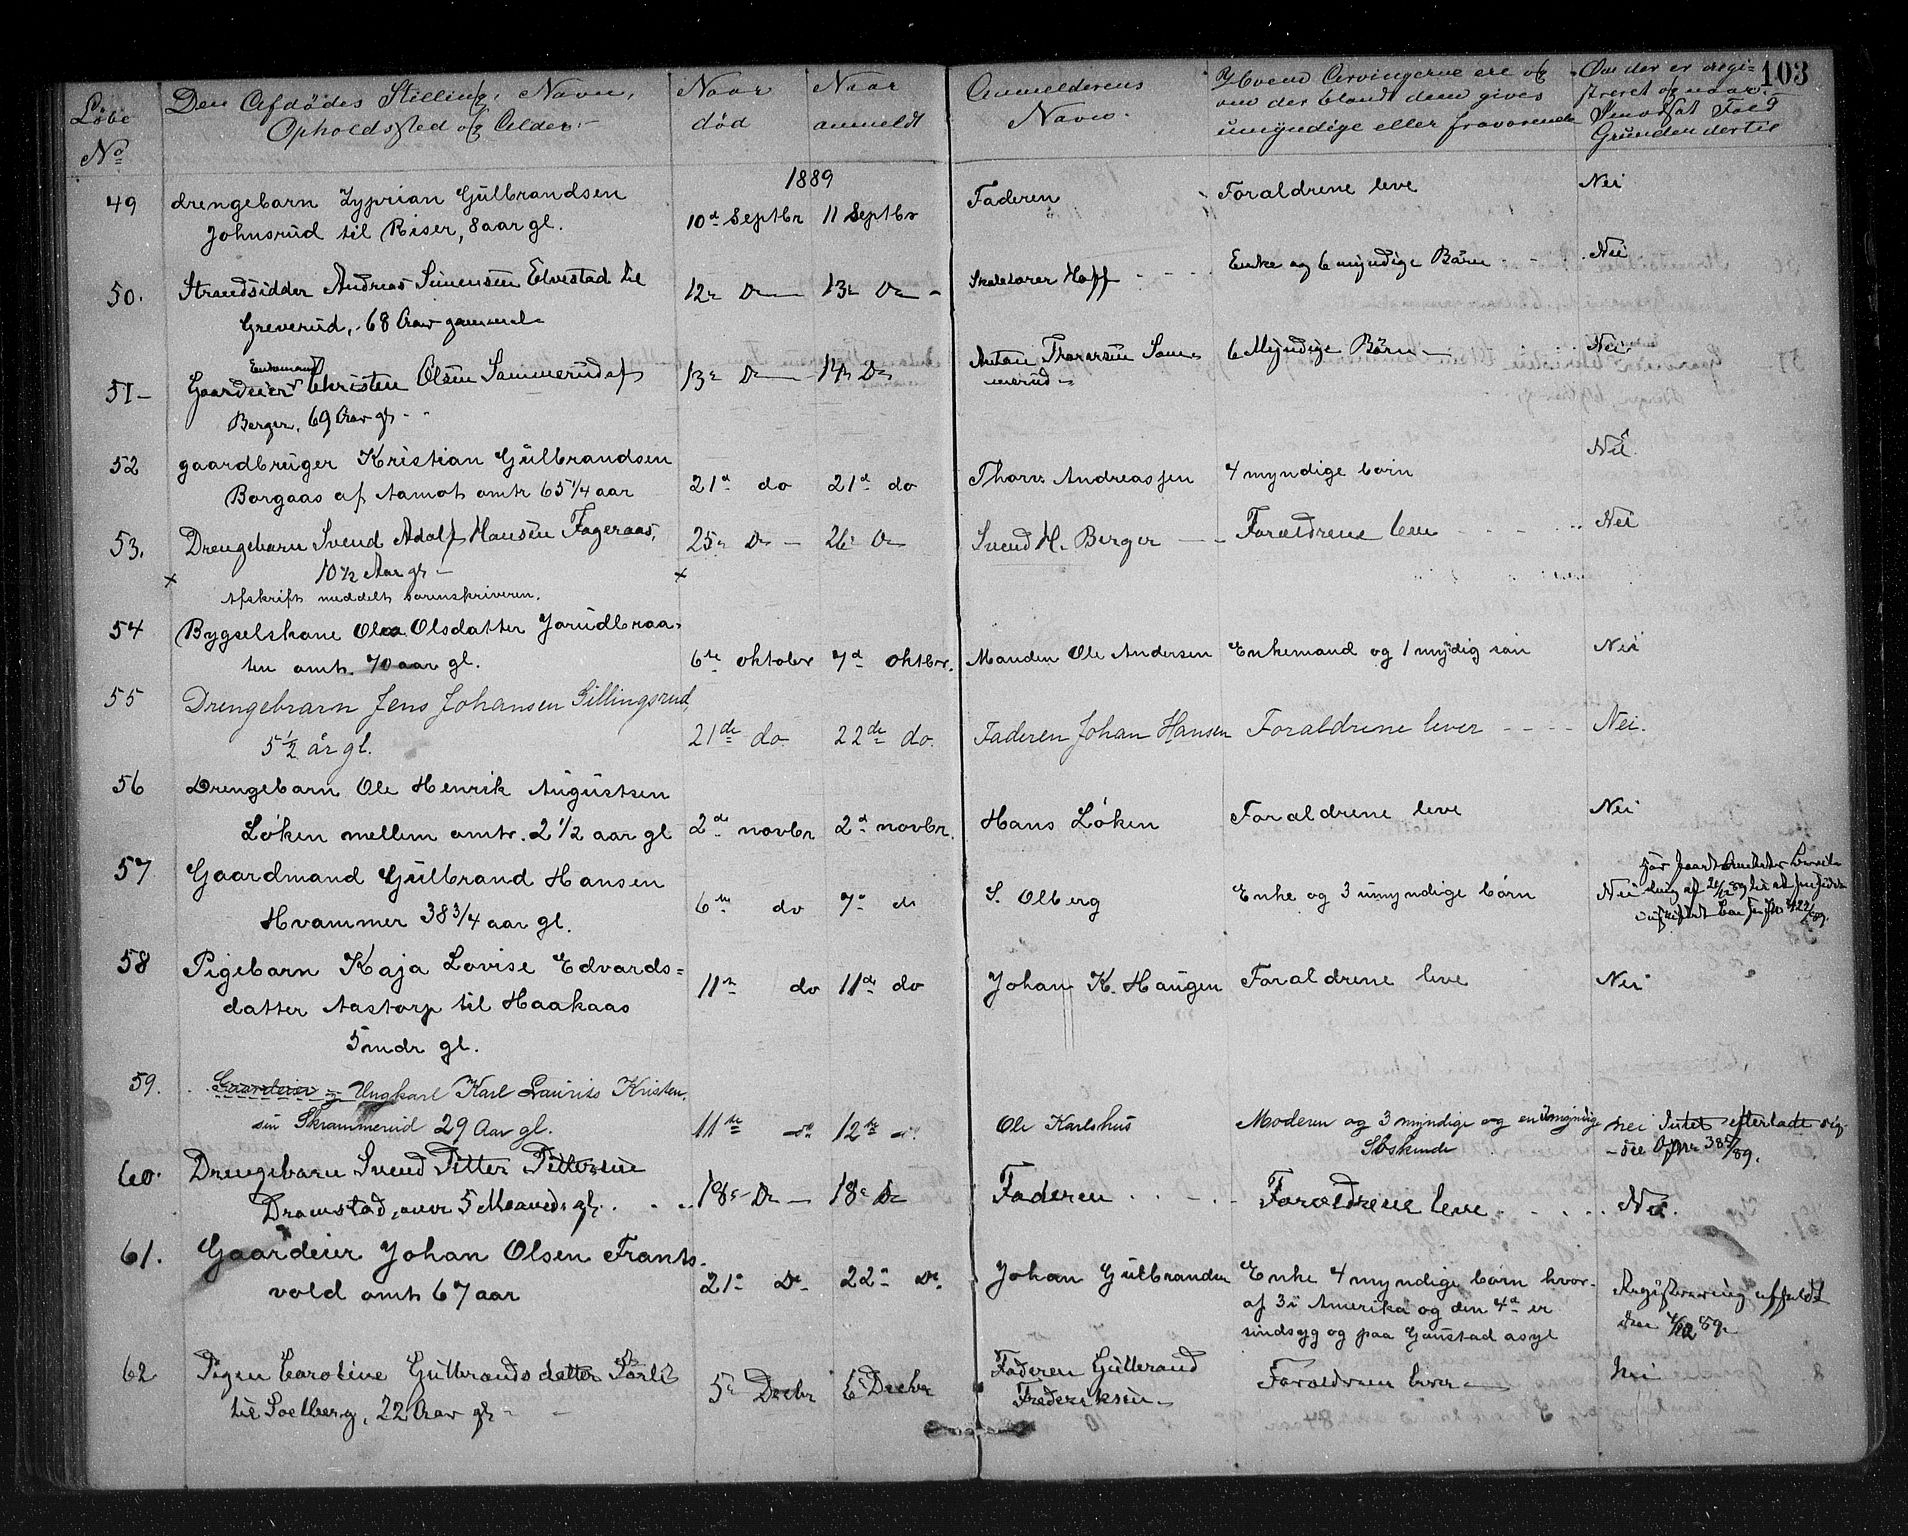 103
Löbe
No
Den Afdödes Stilling, Navn,
Opholdssted og Alder.
Naar
död
Naar
anmeldt
Anmelderens
Navn.
Hvem Arvingerne ere og
om der blandt dem gives
umyndige eller fraværende
Om der er regi-
streret og naar.
I modsat Fald
Grunden dertil
1889
49 drengebarn Zyprian Gulbrandsen
Johnsrud til Riser, 8 aar gl.
10d Septbr 11 Septbr Faderen Foraldrene leve Nei
50. Strandsidder Andreas Simensen Elvestad til
Greverud, 68 Aar gammel
12te Do 13de Do Skoleholder Hoff Enke og 6 myndige Börn Nei
Enkemand
51 Gaardeier Christen Olsen Sommerud af
Berger, 69 Aar gl.
13de Do 14de Do Anton Thoresen Som-
merud 6 Myndige Börn Nei
52 gaardbruger Kristian Gulbrandsen
Borgaas af Aamot omtr 65 1/4 aar
21d do 21d do Thorv. Andreassen 4 myndige börn Nei
53. Drengebarn Svend Adolf Hansen Fageraas,
10 1/2 Aar gl.
x Afskrift meddelt sorenskriveren. x
25de Do 26de Do Svend H. Berger Forældrene leve Nei
54 Bygselskone Olea Olsdatter Jorudbraa-
ten omtr. 70 aar gl.
6te oktobr 7d oktbr. Manden Ole Andersen Enkemand og 1 mydig sön Nei
55 Drengebarn Jens Johansen Gillingsrud,
5 1/2 år gl.
21de do. 22de do. Faderen Johan Hansen Foraldrene lever Nei.
56 Drengebarn Ole Henrik Augustsen
Löken mellem omtr. 2 1/2 aar gl
2de novbr 2d novbr. Hans Löken Foraldrene leve Nei
57 Gaardmand Gulbrand Hansen
Hvammer 38 3/4 aar gl.
6te do 7de do S. Olberg Enke og 3 umyndige börn Nei
58 Pigebarn Kaja Lovise Edvards=
datter Aastorp til Haakaas
5 mdr gl.
11te do 11de do Johan K. Haugen Foraldrene leve Nei
59. Gaardeier Ungkarl Karl Laurits Kristen-
sen Skrammerud 29 Aar gl.
11te do 12te do. Ole Karlshus Moderen og 3 myndige og en umyndig
Söskende
nei Intet efterladt sig.
60. Drengebarn Svend Petter Pettersen
Dramstad, over 5 Maaneder gl.
18de Do 18de Do Faderen Forældrene leve Nei.
61. Gaardeier Johan Olsen Frants-
vold omtr 67 aar
21de Do. 22de Do. Johan Gulbrandsen Enke 4 myndige börn hvor-
af 3 i Amerika og den 4d er
sindsyg og paa Gaustad asyl
Registrering affoldt
den 4/12 89.
62 Pigen Caroline Gulbrandsdatter Sörli
til Soelberg, 22 Aar gl.
5te Decbr 6te Decbr Faderen Gulbrand
Frederiksen Forældren lever Nei